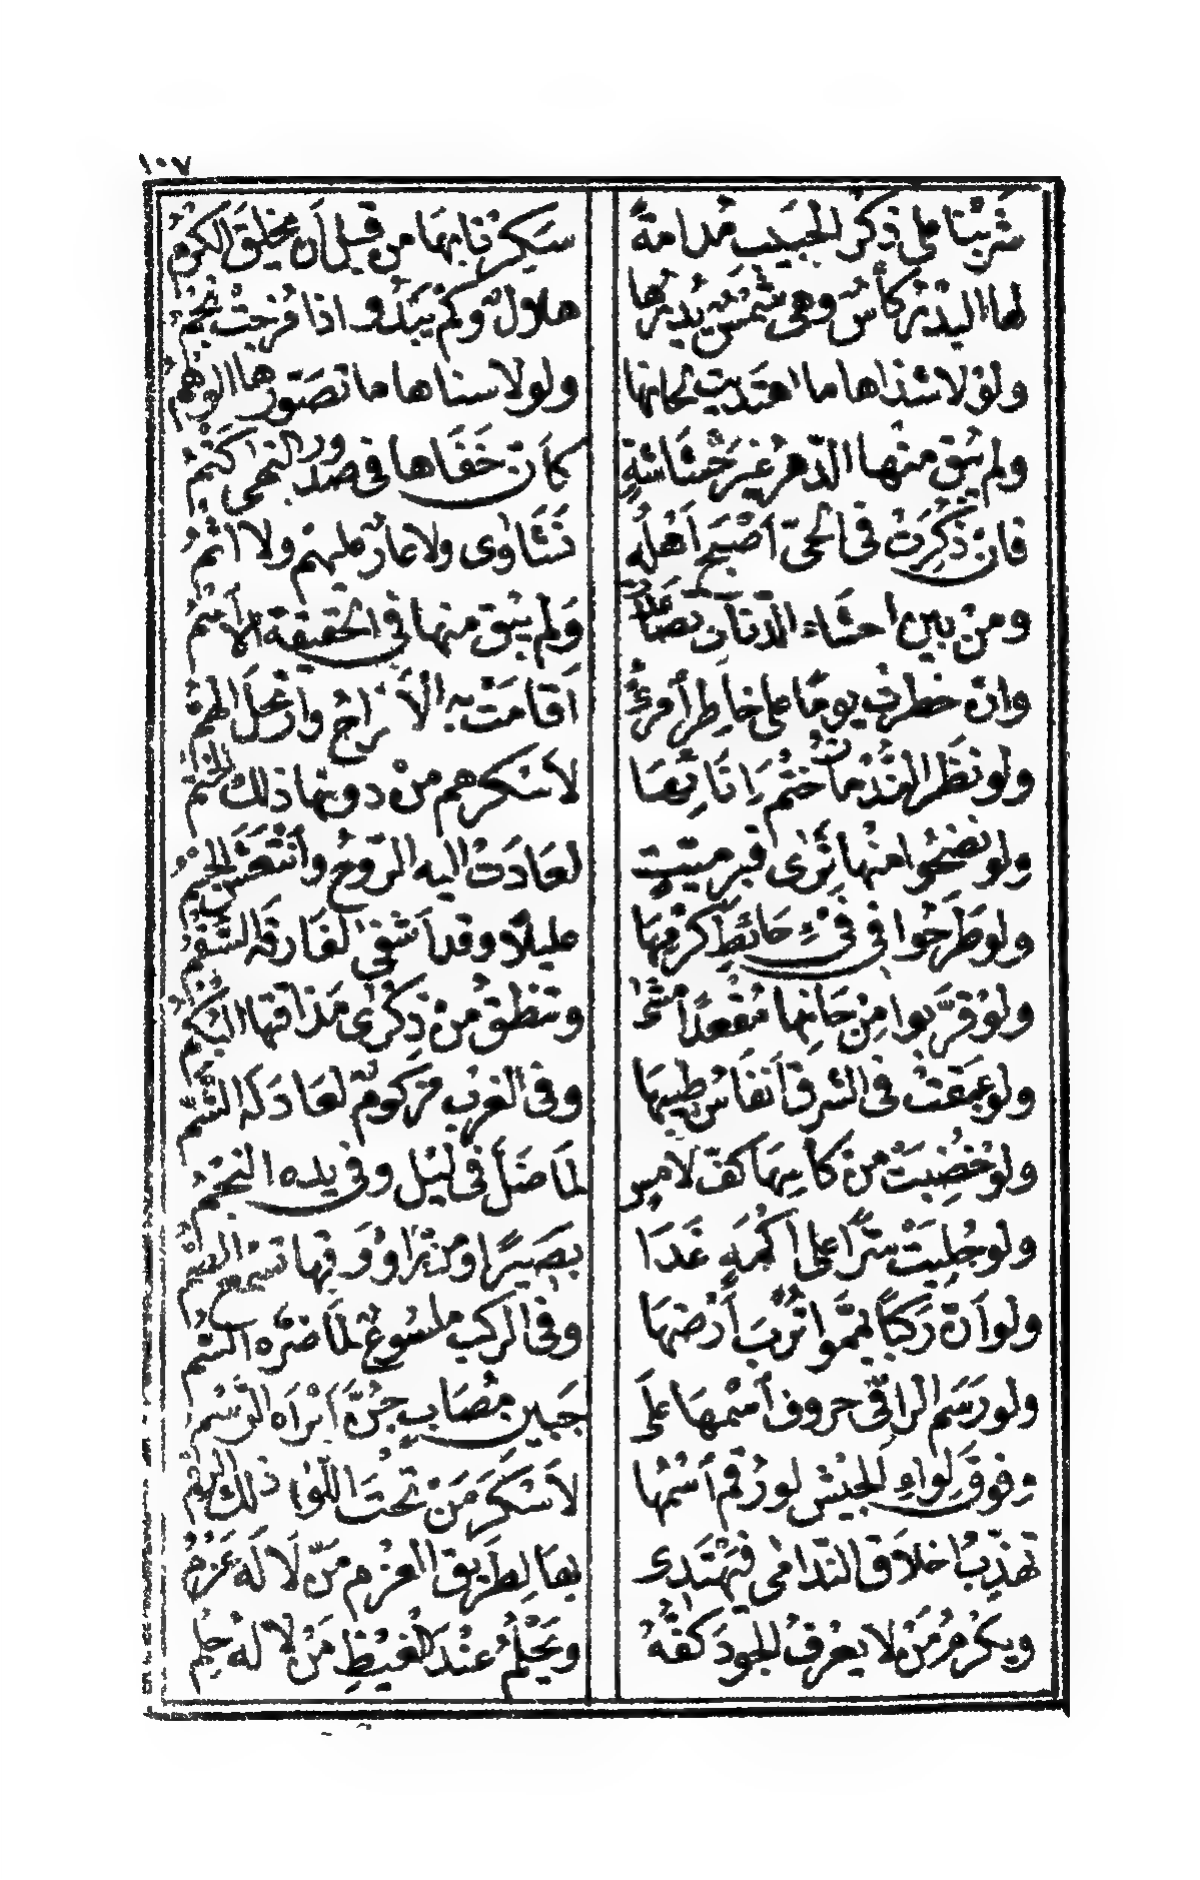 ١٠٧
شَرِبْنَا على ذِكْرِ الحَبيبِ مُدامَةً سَكِرْنَا بِهَا من قبلِ أن يُخلَقَ الكرمُ
لها البدرُ كأسٌ وهي شمسٌ يُديرُها هلالٌ وكم يَبدُو اذا مُزِجتْ نجمُ
ولولا شذاها ما اهتديتُ لحانها ولولا سناها ما تصوّرها الوهمُ
ولم يُبقِ منها الدّهرُ غيرَ حُشَاشَةٍ كأنّ خَفَاها في صدورِ النهى كتمُ
فان ذُكِرَتْ في الحيّ أصْبَح أهْلُهُ نَشَاوى ولا عارٌ عليهم ولا اثمُ
ومنْ بينِ احشاءِ الدنانِ تصاعدتْ ولم يبق منها في الحقيقة الا اسمُ
وان خطرت يومًا على خاطرِ أمرئٍ أقامتْ به الأفراحُ وارتحلَ الهمُّ
ولو نظَر الندمانُ ختمَ انائِها لأسْكرهم منْ دونها ذلك الختمُ
ولو نضحُوا منها ثَرى قبرِ ميّتٍ لعَادَتْ اليه الروحُ وأنتعشَ الجسمُ
ولو طَرَحُوا في فَيْءِ حَائِطِ كرْمِهَا عليلًا وقد أشفى لفارقَهُ السقمُ
ولو قرّبوا مِنْ حَانِها مُقْعدًا مشَى وتنطقُ منْ ذِكْرى مَذاقتها البُكمُ
ولو عبقتْ في الشرقِ أنفاسُ طيبِهَا وفي الغربِ مزكومٌ لعَادَ لهُ الشمُّ
ولو خُضِبَتْ منْ كاسِهَا كفُّ لامسٍ لمَا ضَلَّ في ليْلٍ وفي يده النجْمُ
ولو جُلِيَتْ سرًّا على اكْمَهٍ غَدَا بصَيرًا ومن رَاوُوقِها تسْمعُ الصمُّ
ولو أنّ رَكبًا يمّموا تُرْبَ أرْضِهَا وفي الركبِ ملسُوعٌ لمَا ضرّه السّمُّ
ولو رَسَم الراقي حروفَ أسْمِهَا على جَبينِ مُصَابٍ جُنَّ أبْرَاه الرّسْمُ
وفوقَ لِواءِ الجيْشِ لو رُقِم أسْمُهَا لأسْكرَ مَنْ تحْتَ اللّوَا ذلك الرقمُ
تهذّبُ اخلاقَ النّدامى فيَهْتَدى بهَا لِطَريقِ العزْمِ مَنْ لَا لَه عَزْمُ
ويكْرُمُ مَنْ لا يعْرفُ الجودَ كَفُّهُ ويَحْلُمُ عنْدَ الغيْظِ مَنْ لَا لهُ حِلمُ